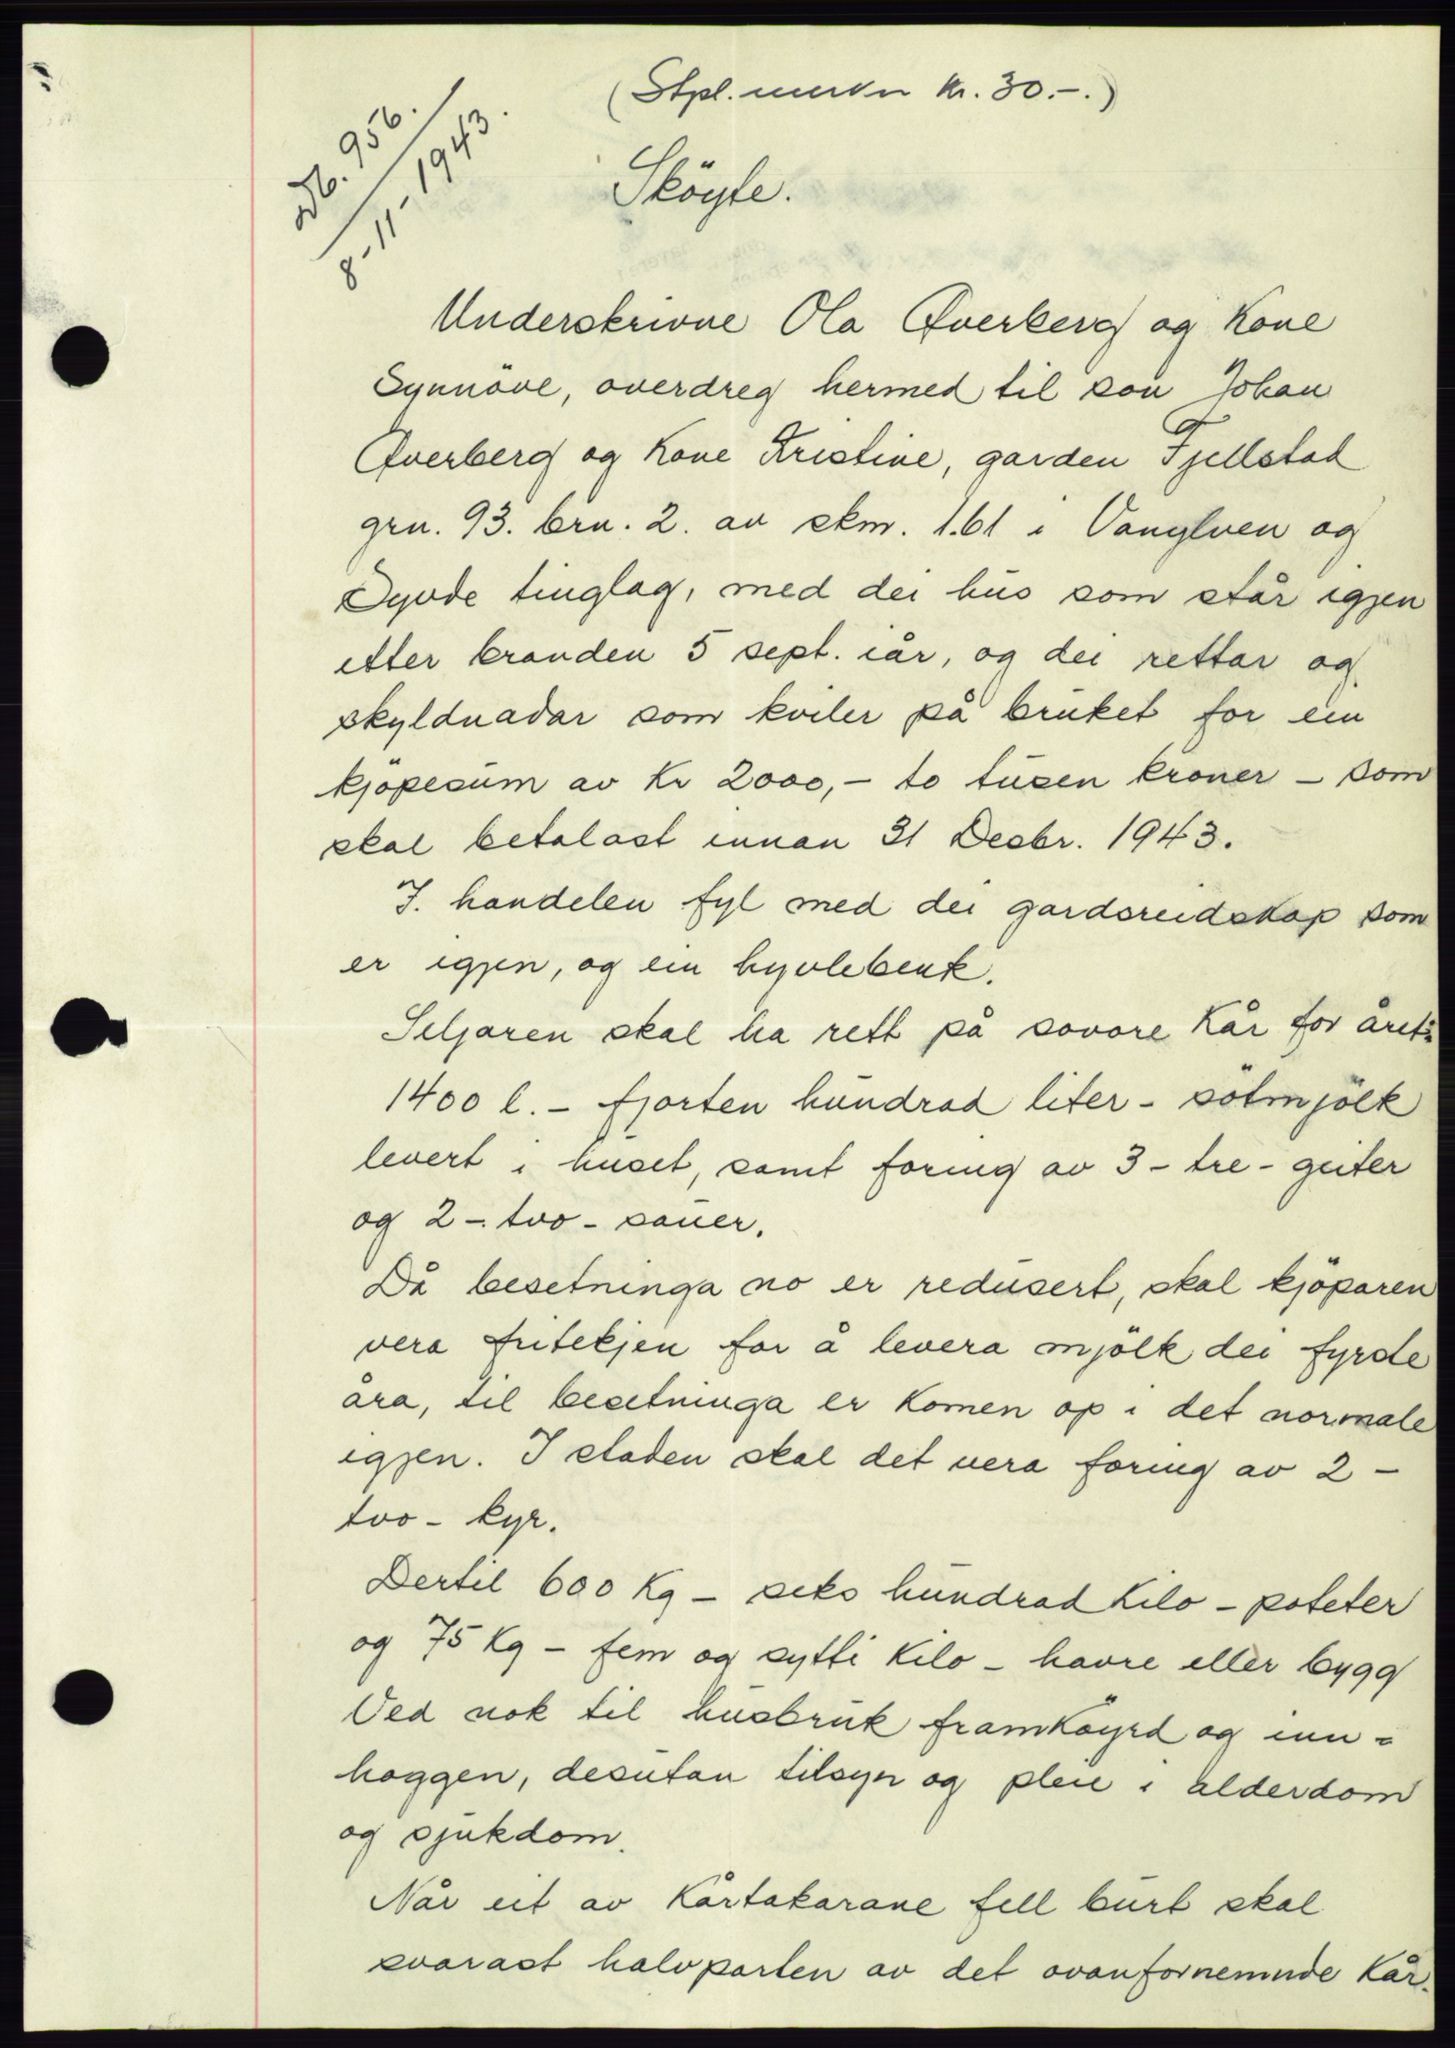 (Stpl.merker kr. 30.-.)
db. 956.
8-11-1943.
Sköyte.
Underskrivne Ola Överberg og Kone
Synnöve, overdreg hermed til son Johan
Överberg og Kone Kristine, garden Fjellstad
grn. 93. brn. 2. av skm. 1.61 i Vanylven og
Syvde tinglag, med dei hus som står igjen
etter branden 5 sept. iår, og dei rettar og
skyldnadar som kviler på bruket for ein
kjöpesum av Kr 2000,- to tusen kroner - som
skal betalast innan 31 Desbr. 1943.
I. handelen fyl med dei gardsreidskap som
er igjen, og ein hyvlebenk.
Seljaren skal ha rett på sovore Kår for året:
1400 l. - fjorten hundrad liter - sötmjölk
levert i huset, samt foring av 3 - tre - geiter
og 2 - tvo - sauer.
Då besetninga no er redusert, skal kjöparen
vera fritekjen for å levera mjölk dei fyrste
åra, til besetninga er Komen op i det normale
igjen. I staden skal det vera foring av 2 -
tvo - kyr.
Dertil 600 Kg - seks hundrad Kilo - poteter
og 75 Kg - fem og sytti Kilo - havre eller bygg
Ved nok til husbruk framköyrd og inn-
hoggen, desutan tilsyn og pleie i alderdom
og sjukdom.
Når eit av Kårtakarane fell burt skal
svarast halvparten av det ovanfornemnde Kår.